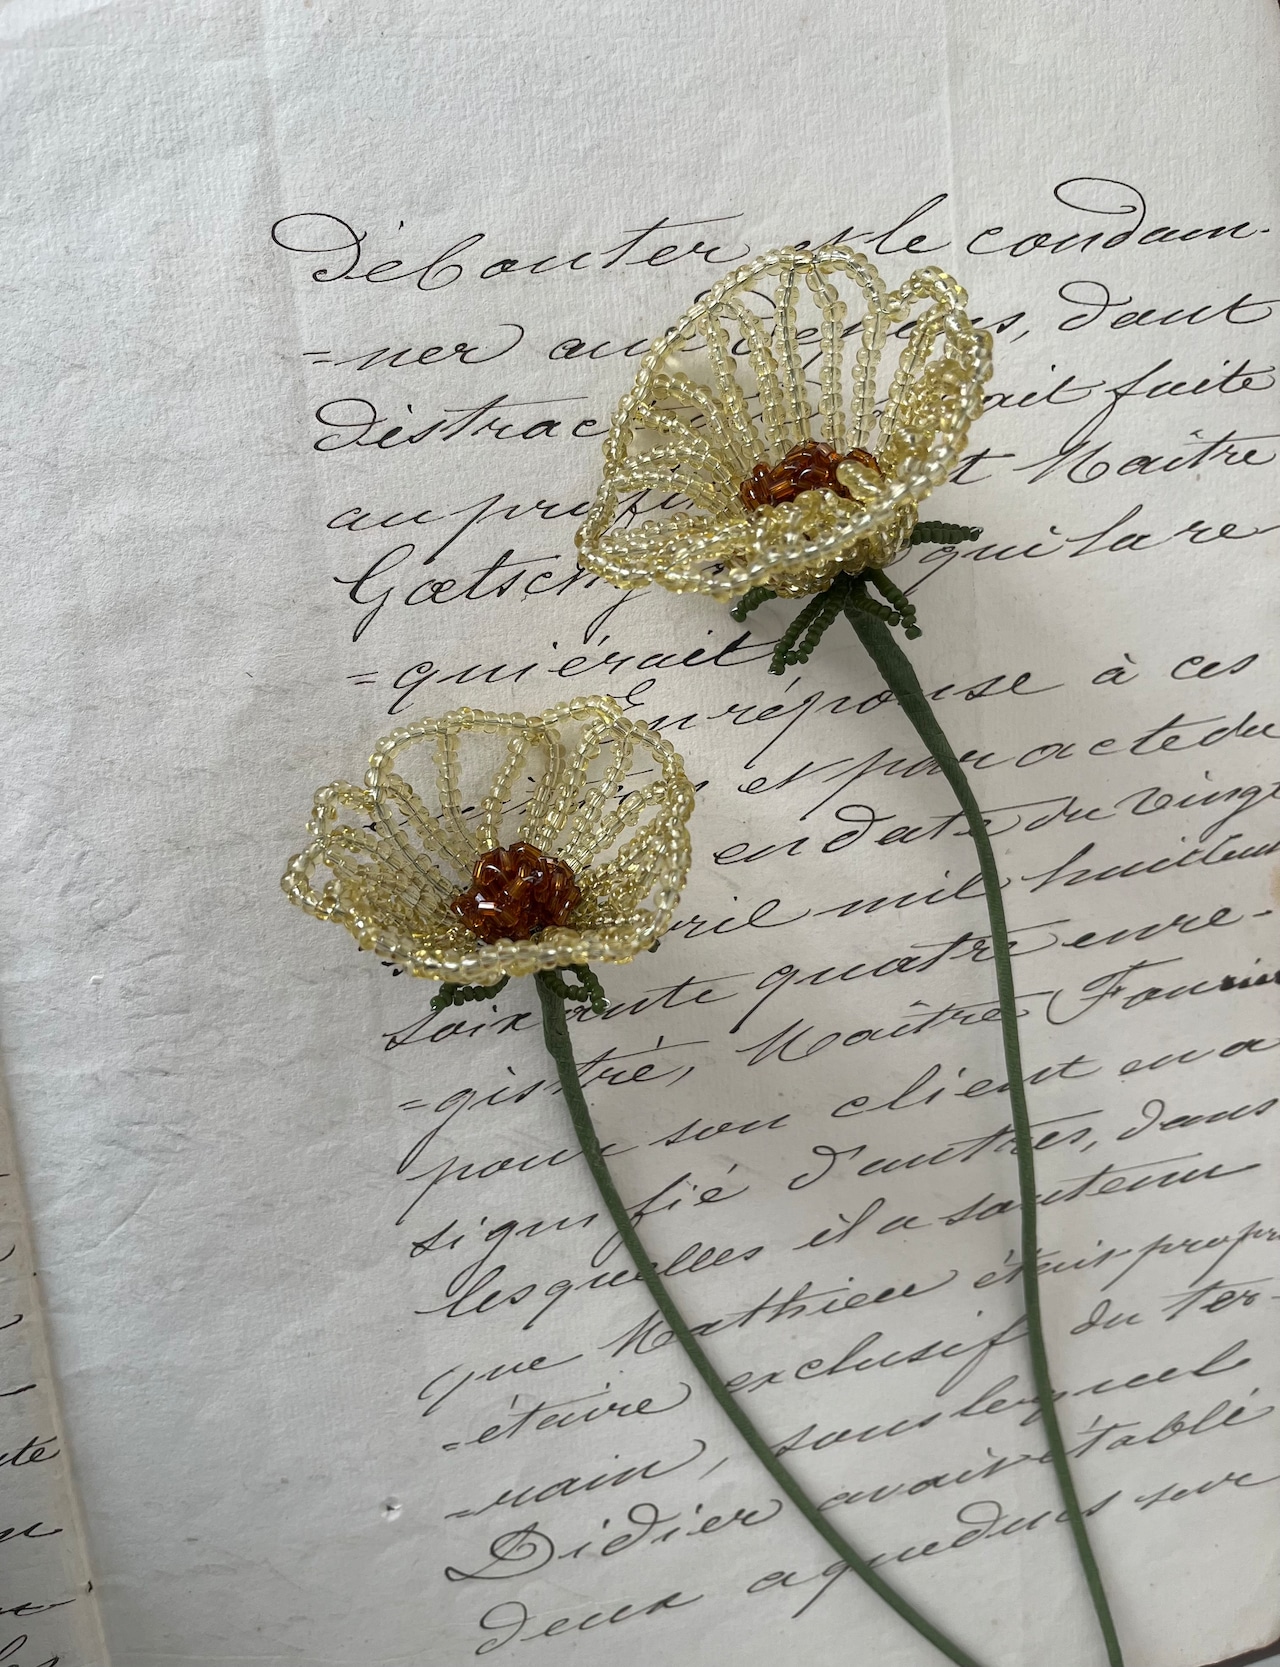 Débouter et le condam-
=ner aux Dépens, dont
distrac ait faite
au profit t Maître
Gœtsch qui la re
=quiérait
En réponse à ces
et par acte du
en date du vingt
ril mil huit cent
soixante quatre enre-
=gistré, Maître Fournier
pour son client en a
signifié d'autres, dans
lesquelles il a soutenu
que Mathieu était propri
=étaire exclusif du ter-
=rain, sous lequel
Didier avait établi
deux aqueducs sur